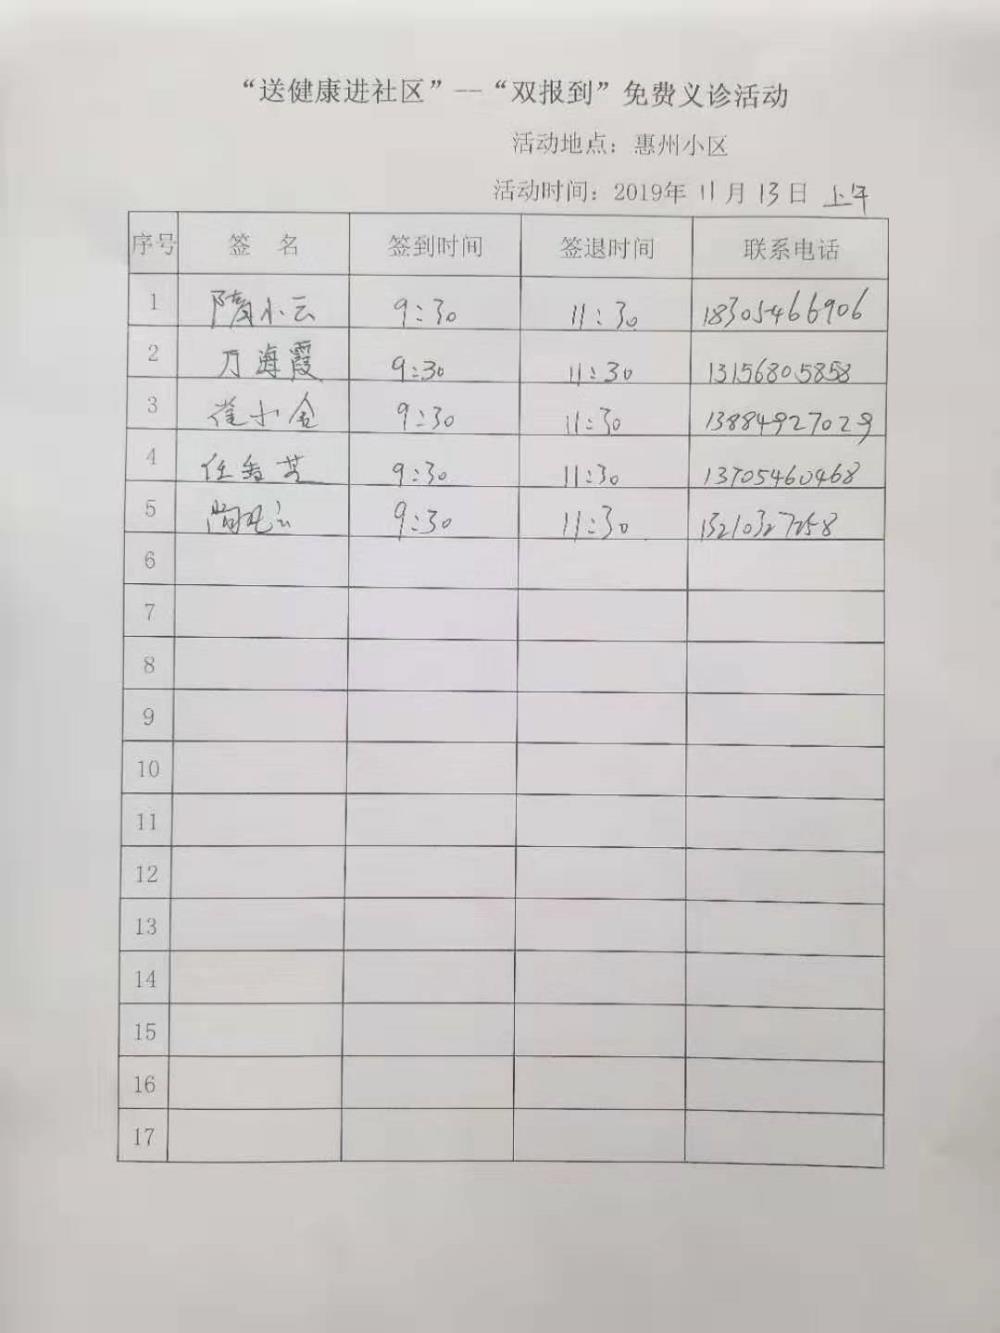 “送健康进社区”--“双报到”免费义诊活动
活动地点：惠州小区
活动时间：2019年 11月 13日 上午
序号 签 名 签到时间 签退时间 联系电话
1 隋小云 9:30 11:30 18305466906
2 万海霞 9:30 11:30 13156805858
3 崔小舍 9:30 11:30 13884927029
4 任 9:30 11:30 13705460468
5 9:30 11:30 13210327258
6
7
8
9
10
11
12
13
14
15
16
17